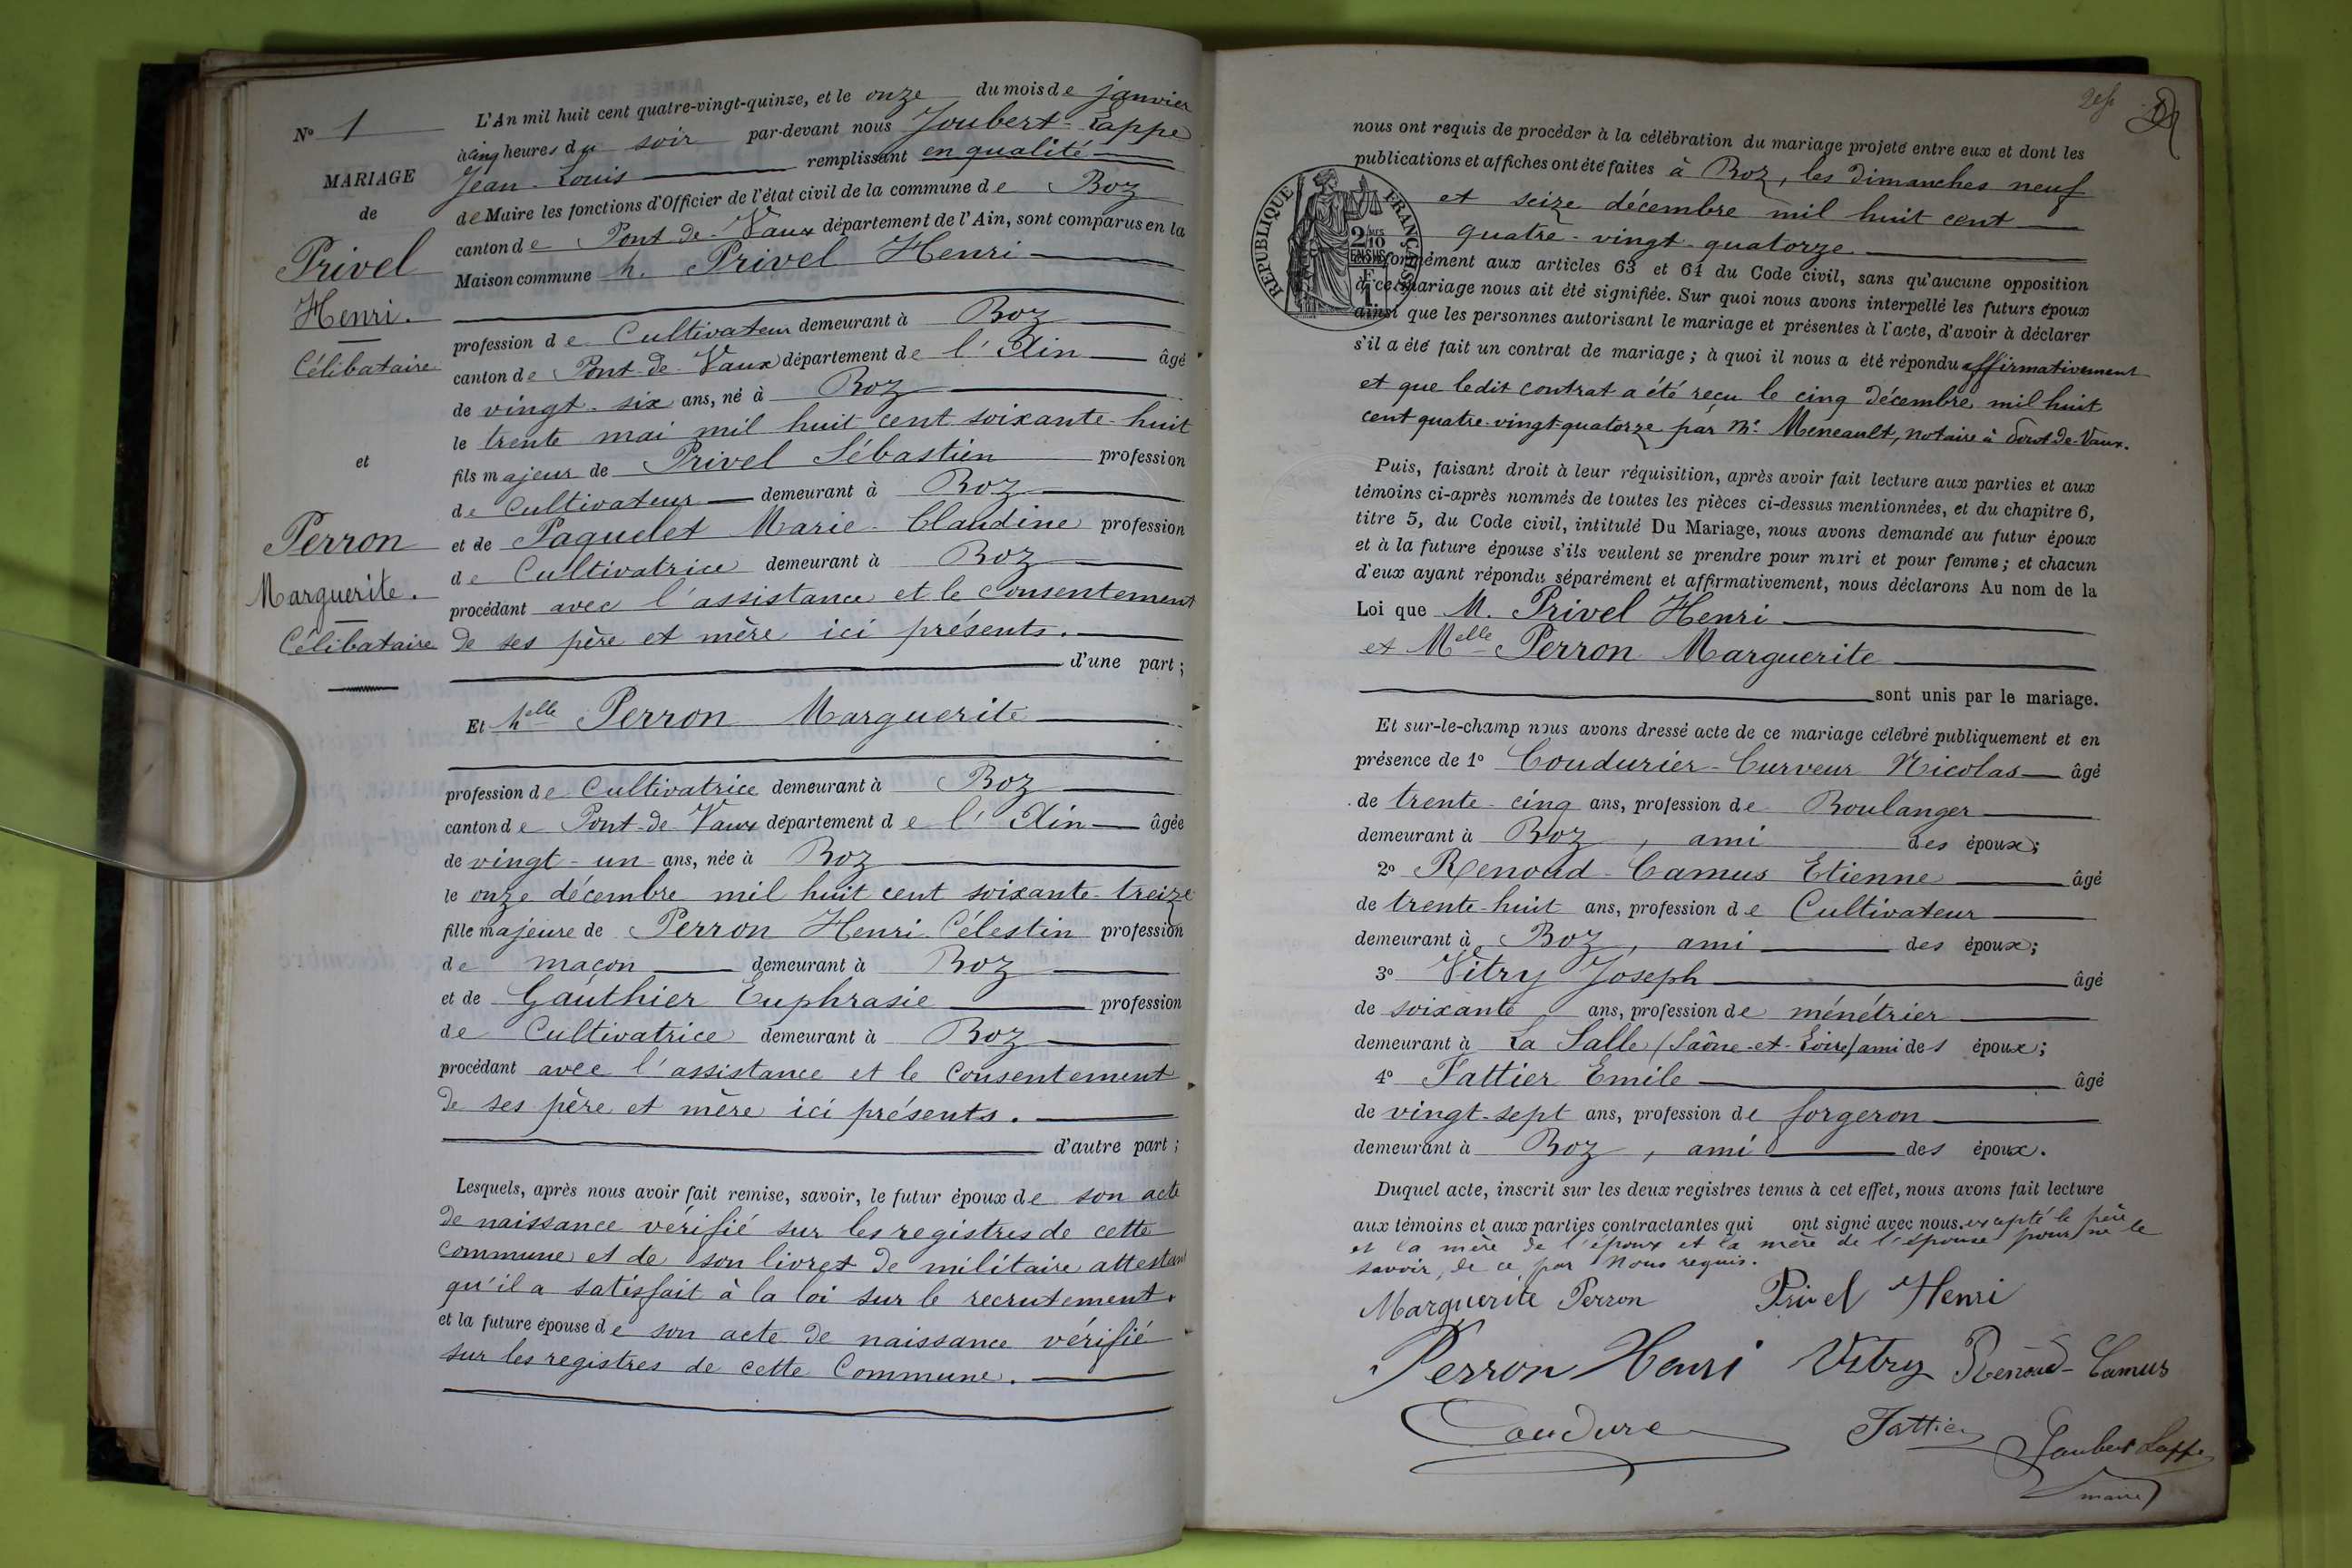 N° 1
MARIAGE
de
Privel
Henri.
Célibataire
et
Perron
Marguerite.
Célibataire
L'An mil huit cent quatre-vingt-quinze, et le onze du mois de janvier
à cinq heures du soir par-devant nous Joubert-Lappe
Jean-Louis remplissant en qualité
de Maire les fonctions d'Officier de l'état civil de la commune de Boz
canton de Pont-de-Vaux département de l'Ain, sont comparus en la
Maison commune M. Privel Henri
profession de Cultivateur demeurant à Boz
canton de Pont-de-Vaux département de l'Ain âgé
de vingt-six ans, né à Boz
le trente mai mil huit cent soixante-huit
fils majeur de Privel Sébastien profession
de Cultivateur demeurant à Boz
et de Paquelet Marie-Claudine profession
de Cultivatrice demeurant à Boz
procédant avec l'assistance et le consentement
de ses père et mère ici présents.
d'une part;
Et Melle Perron Marguerite
profession de Cultivatrice demeurant à Boz
canton de Pont-de-Vaux département de l'Ain âgée
de vingt-un ans, née à Boz
le onze décembre mil huit cent soixante-treize
fille majeure de Perron Henri-Célestin profession
de maçon demeurant à Boz
et de Gauthier Euphrasie profession
de Cultivatrice demeurant à Boz
procédant avec l'assistance et le consentement
de ses père et mère ici présents.
d'autre part;
Lesquels, après nous avoir fait remise, savoir, le futur époux de son acte
de naissance vérifié sur les registres de cette
commune et de son livret de militaire attestant
qu'il a satisfait à la loi sur le recrutement.
et la future épouse de son acte de naissance vérifié
sur les registres de cette Commune.
RÉPUBLIQUE FRANÇAISE
2/10
nous ont requis de procéder à la célébration du mariage projeté entre eux et dont les
publications et affiches ont été faites à Boz, les dimanches neuf
et seize décembre mil huit cent
quatre-vingt-quatorze
conformément aux articles 63 et 64 du Code civil, sans qu'aucune opposition
à ce mariage nous ait été signifiée. Sur quoi nous avons interpellé les futurs époux
ainsi que les personnes autorisant le mariage et présentes à l'acte, d'avoir à déclarer
s'il a été fait un contrat de mariage; à quoi il nous a été répondu affirmativement
et que ledit contrat a été reçu le cinq décembre mil huit
cent quatre-vingt-quatorze par Me Meneault, notaire à Pont-de-Vaux.
Puis, faisant droit à leur réquisition, après avoir fait lecture aux parties et aux
témoins ci-après nommés de toutes les pièces ci-dessus mentionnées, et du chapitre 6,
titre 5, du Code civil, intitulé Du Mariage, nous avons demandé au futur époux
et à la future épouse s'ils veulent se prendre pour mari et pour femme; et chacun
d'eux ayant répondu séparément et affirmativement, nous déclarons Au nom de la
Loi que M. Privel Henri
et Melle Perron Marguerite
sont unis par le mariage.
Et sur-le-champ nous avons dressé acte de ce mariage célébré publiquement et en
présence de 1° Coudurier-Curveur Nicolas âgé
de trente-cinq ans, profession de Boulanger
demeurant à Boz, ami des époux;
2° Renoud-Camus Etienne âgé
de trente-huit ans, profession de Cultivateur
demeurant à Boz, ami des époux;
3° Vitry Joseph âgé
de soixante ans, profession de ménétrier
demeurant à La Salle (Saône-et-Loire) ami des époux;
4° Fattier Emile âgé
de vingt-sept ans, profession de forgeron
demeurant à Boz, ami des époux.
Duquel acte, inscrit sur les deux registres tenus à cet effet, nous avons fait lecture
aux témoins et aux parties contractantes qui ont signé avec nous. excepté le père
et la mère de l'époux et la mère de l'épouse pour ne le
savoir, de ce par Nous requis.
Marguerite Perron Privel Henri
Perron Henri Vitry Renoud-Camus
Coudure Fattier Joubert Lappe
maire